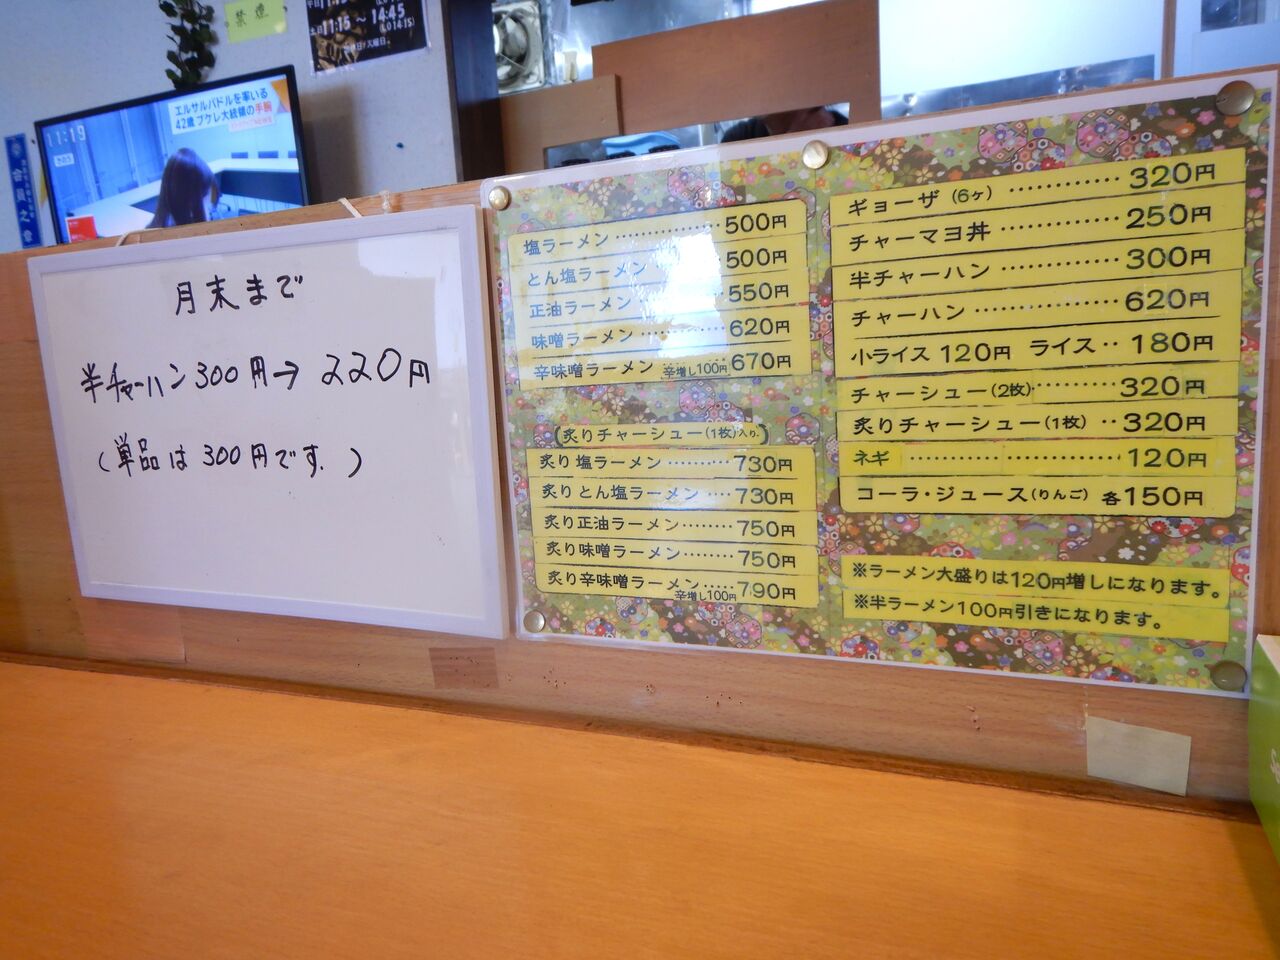 禁煙
11:15～14:45
(L.O 14:15)
エルサルバドルを率いる
42歳 ブケレ大統領の手腕
11:19
会員之章
月末まで
半チャーハン 300円→220円
(単品は300円です。)
塩ラーメン 500円
とん塩ラーメン 500円
正油ラーメン 550円
味噌ラーメン 620円
辛味噌ラーメン 辛増し100円 670円
(炙りチャーシュー(1枚)入り)
炙り塩ラーメン 730円
炙りとん塩ラーメン 730円
炙り正油ラーメン 750円
炙り味噌ラーメン 750円
炙り辛味噌ラーメン 辛増し100円 790円
ギョーザ(6ヶ) 320円
チャーマヨ丼 250円
半チャーハン 300円
チャーハン 620円
小ライス 120円 ライス 180円
チャーシュー(2枚) 320円
炙りチャーシュー(1枚) 320円
ネギ 120円
コーラ・ジュース(りんご) 各150円
※ラーメン大盛りは120円増しになります。
※半ラーメン100円引きになります。